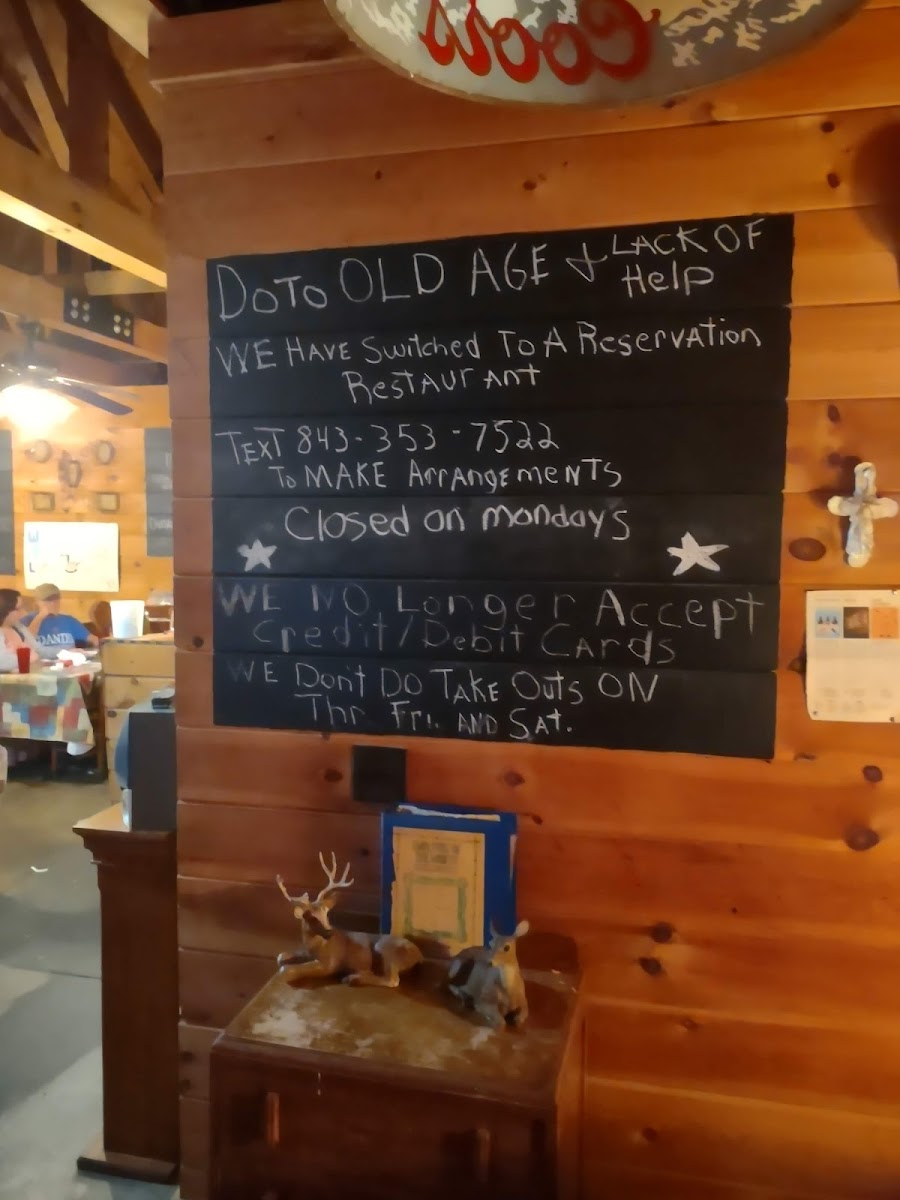 Coors
DoTo OLD AGE & LACK OF
Help
WE HAVE Switched To A Reservation
Restaurant
TEXT 843-353-7522
To MAKE ArrAngemeNTS
Closed on mondays
WE NO Longer Accept
Credit/Debit CArds
WE Dont DO TAKE Outs ON
Thr Fri. AND SAt.